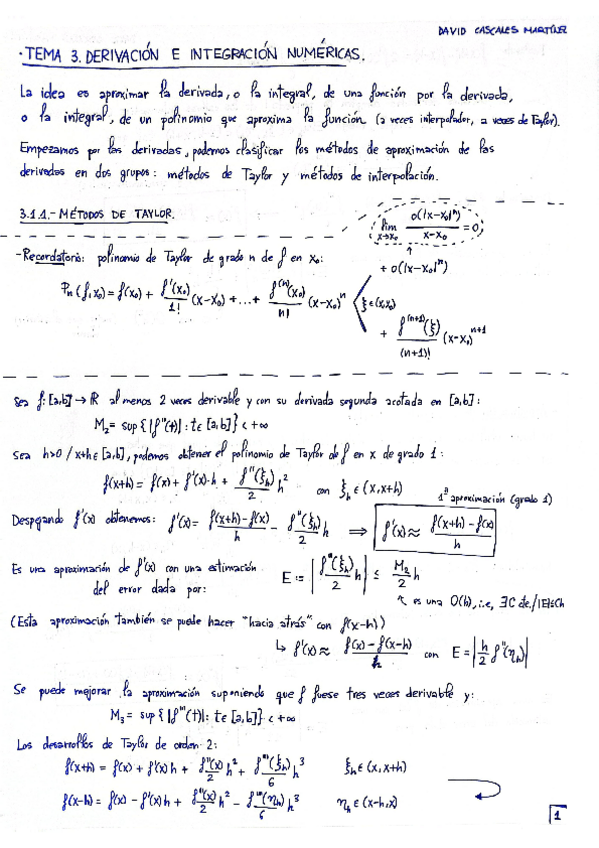 DAVID CASCALES MARTÍNEZ
·TEMA 3. DERIVACIÓN E INTEGRACIÓN NUMÉRICAS.
La idea es aproximar la derivada, o la integral, de una función por la derivada,
o la integral, de un polinomio que aproxima la función (a veces interpolador, a veces de Taylor).
Empezamos por las derivadas, podemos clasificar los métodos de aproximación de las
derivadas en dos grupos: métodos de Taylor y métodos de interpolación.
3.1.1.- MÉTODOS DE TAYLOR.
lim x→x₀ o(|x-x₀|ⁿ)/(x-x₀) = 0
-Recordatorio: polinomio de Taylor de grado n de f en x₀:
+ o(|x-x₀|ⁿ)
Pₙ(f,x₀) = f(x₀) + f'(x₀)/1! (x-x₀) + ... + f⁽ⁿ⁾(x₀)/n! (x-x₀)ⁿ
ξ ∈ (x,x₀)
+ f⁽ⁿ⁺¹⁾(ξ)/(n+1)! (x-x₀)ⁿ⁺¹
Sea f: [a,b] → ℝ al menos 2 veces derivable y con su derivada segunda acotada en [a,b]:
M₂ = sup{|f''(t)| : t ∈ [a,b]} < +∞
Sea h>0 / x+h ∈ [a,b], podemos obtener el polinomio de Taylor de f en x de grado 1:
f(x+h) = f(x) + f'(x)·h + f''(ξₕ)/2 h² con ξₕ ∈ (x,x+h)
1ª aproximación (grado 1)
Despejando f'(x) obtenemos: f'(x) = (f(x+h)-f(x))/h - f''(ξₕ)/2 h ⟹ f'(x) ≈ (f(x+h)-f(x))/h
Es una aproximación de f'(x) con una estimación
del error dada por: E := |f''(ξₕ)/2 h| ≤ M₂/2 h
↖ es una O(h), i.e, ∃C de./|E|≤Ch
(Esta aproximación también se puede hacer "hacia atrás" con f(x-h))
↳ f'(x) ≈ (f(x)-f(x-h))/h con E = |h/2 f''(ηₕ)|
Se puede mejorar la aproximación suponiendo que f fuese tres veces derivable y:
M₃ = sup{|f'''(t)| : t ∈ [a,b]} < +∞
Los desarrollos de Taylor de orden 2:
f(x+h) = f(x) + f'(x)h + f''(x)/2 h² + f'''(ξₕ)/6 h³ ξₕ ∈ (x,x+h)
f(x-h) = f(x) - f'(x)h + f''(x)/2 h² - f'''(ηₕ)/6 h³ ηₕ ∈ (x-h,x)
1